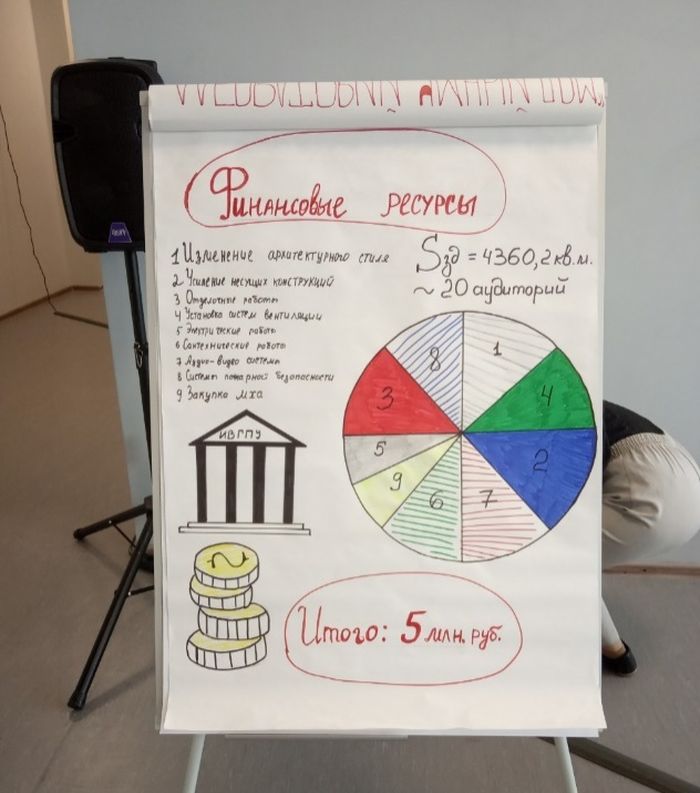 Финансовые ресурсы
1 Изменение архитектурного стиля
2 Усиление несущих конструкций
3 Отделочные работы
4 Установка систем вентиляции
5 Электрические работы
6 Сантехнические работы
7 Аудио-видео системы
8 Системы пожарной безопасности
9 Закупка мха
Sзд = 4360,2 кв.м.
~ 20 аудиторий
8
1
3
4
5
2
9
6
7
ИВГПУ
Итого: 5 млн. руб.